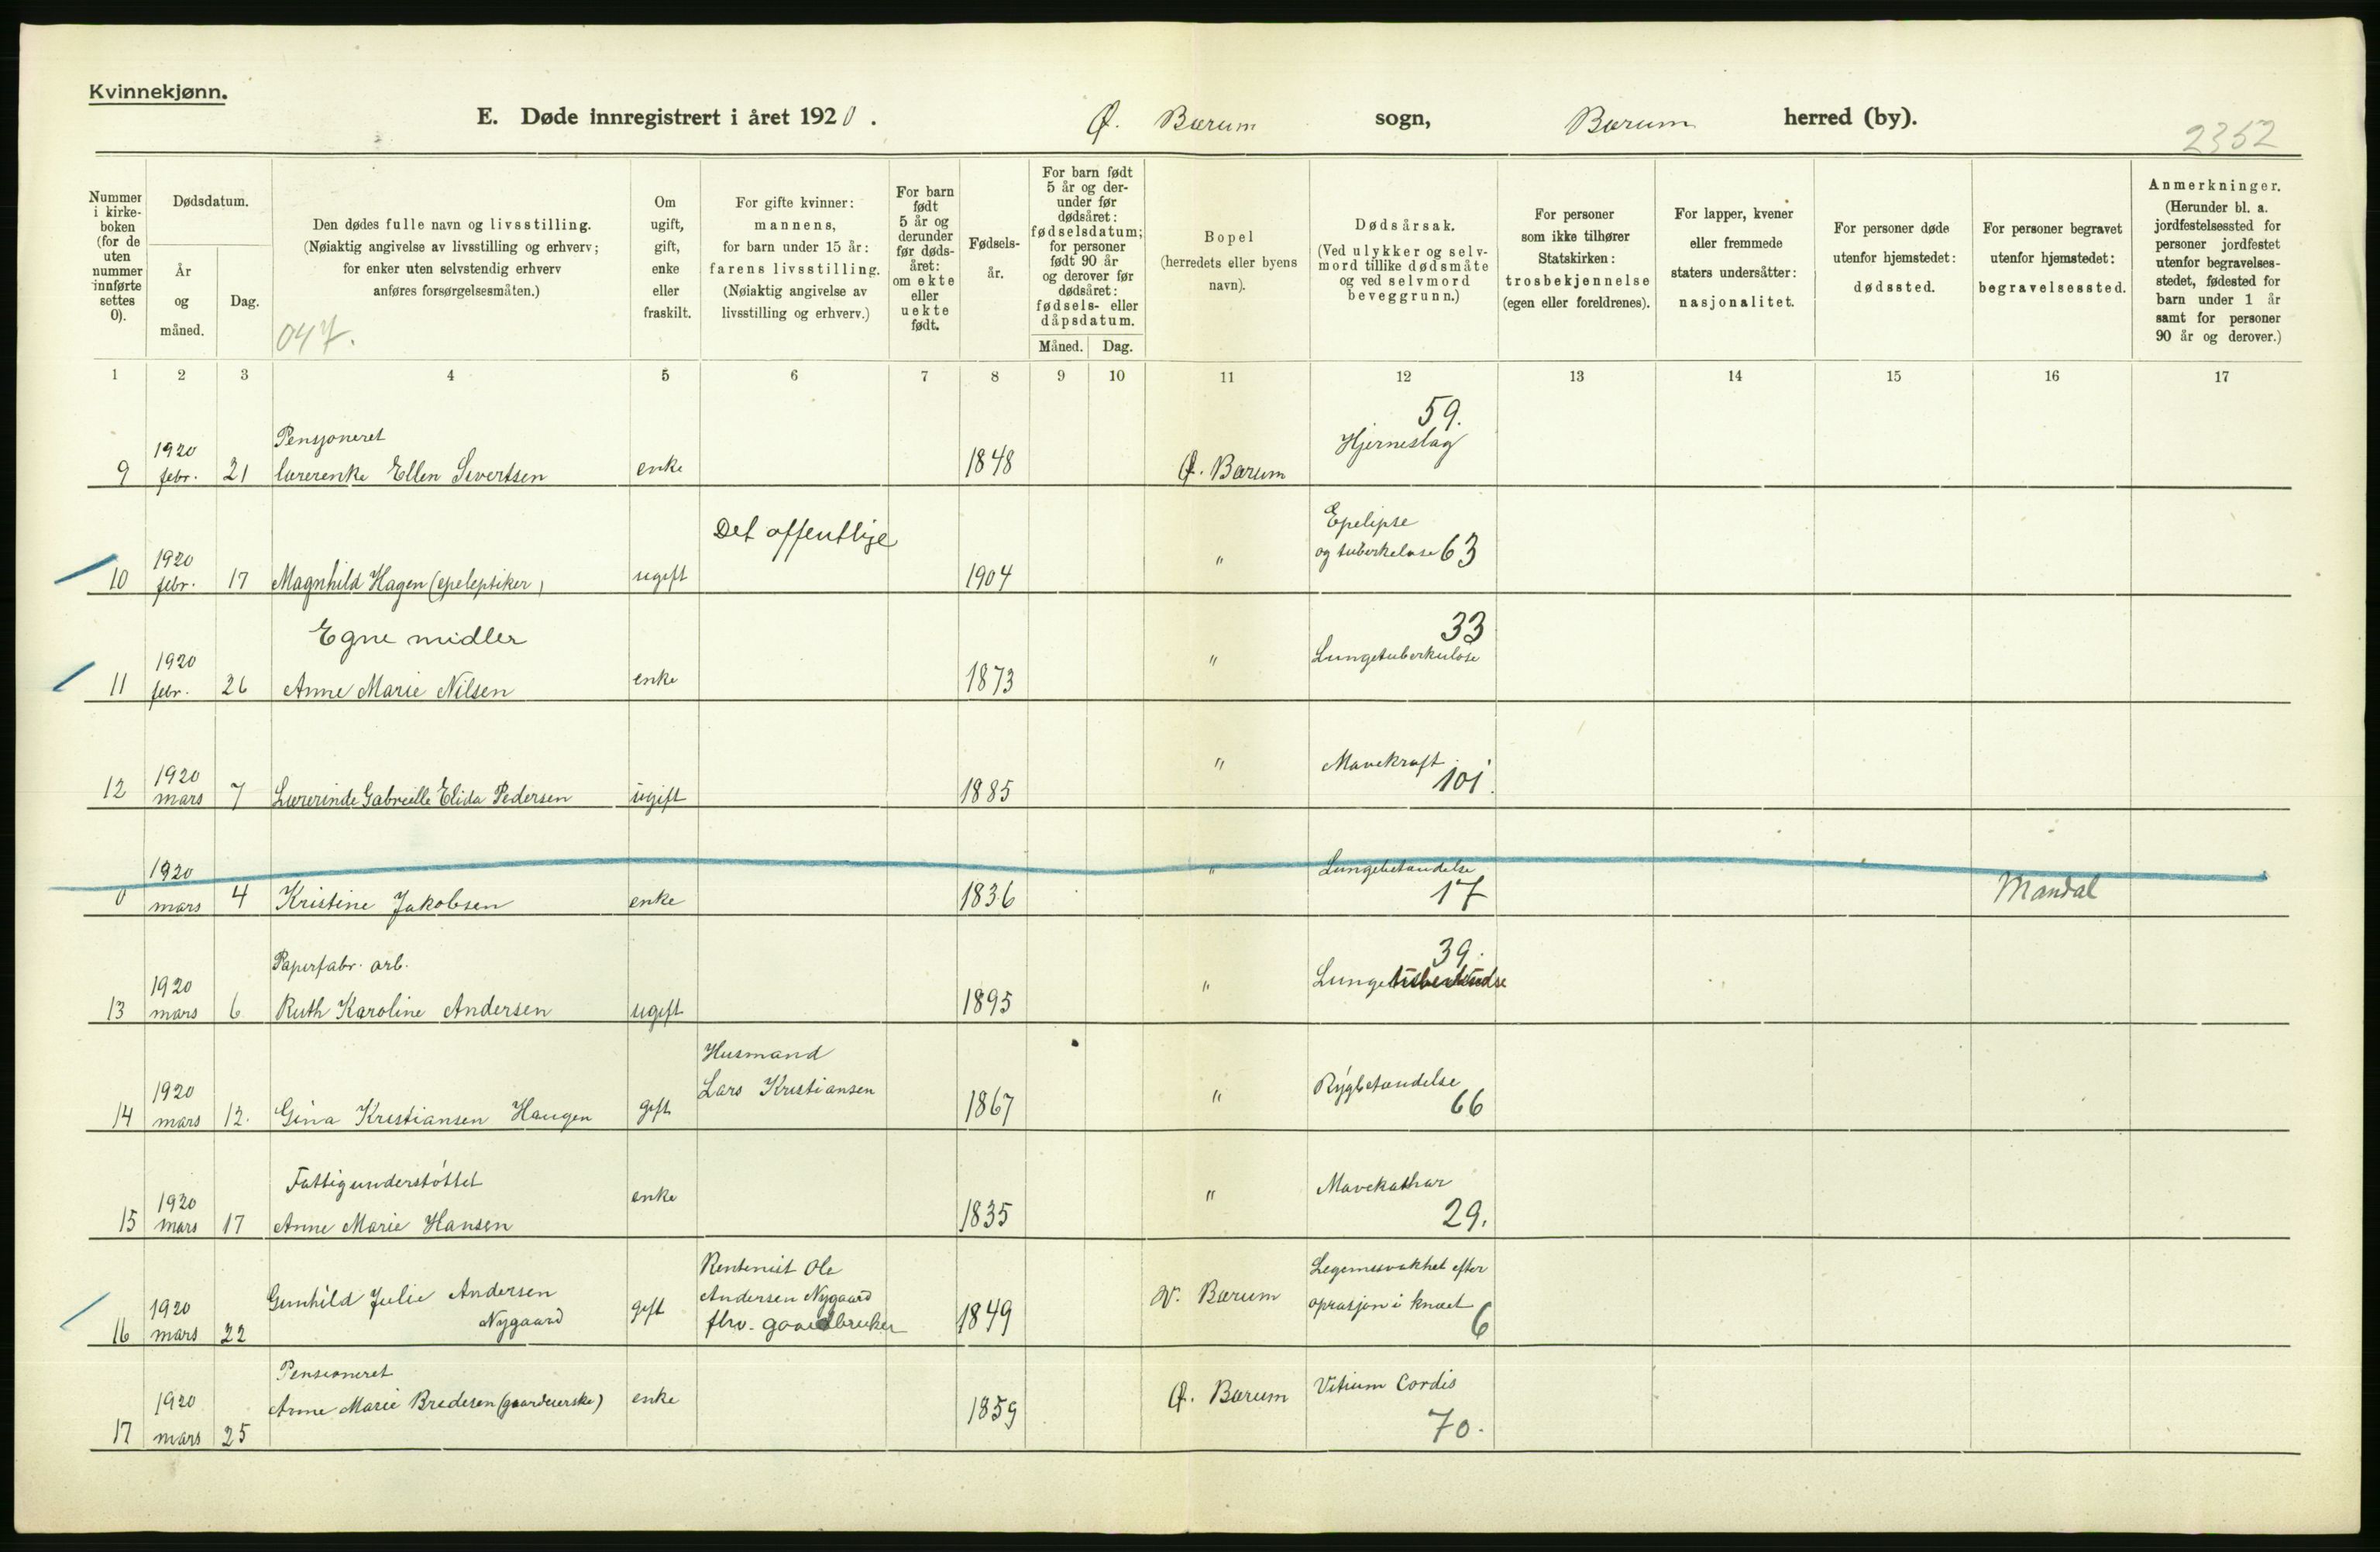 Kvinnekjønn.
E. Døde innregistrert i året 1920. Ø. Bærum sogn, Bærum herred (by).
2352
Nummer i kirke-boken (for de uten nummer innførte settes 0).
Dødsdatum.
År og måned.
Dag.
Den dødes fulle navn og livsstilling.
(Nøiaktig angivelse av livsstilling og erhverv;
for enker uten selvstendig erhverv
anføres forsørgelsesmåten.)
047.
Om ugift, gift, enke eller fraskilt.
For gifte kvinner:
mannens,
for barn under 15 år:
farens livsstilling.
(Nøiaktig angivelse av
livsstilling og erhverv.)
For barn født 5 år og derunder før døds-året: om ekte eller uekte født.
Fødsels-år.
For barn født 5 år og der-under før dødsåret: fødselsdatum; for personer født 90 år og derover før dødsåret: fødsels- eller dåpsdatum.
Måned. Dag.
Bopel
(herredets eller byens
navn).
Dødsårsak.
(Ved ulykker og selv-
mord tillike dødsmåte
og ved selvmord
beveggrunn.)
For personer
som ikke tilhører
Statskirken:
trosbekjennelse
(egen eller foreldrenes).
For lapper, kvener
eller fremmede
staters undersåtter:
nasjonalitet.
For personer døde
utenfor hjemstedet:
dødssted.
For personer begravet
utenfor hjemstedet:
begravelsessted.
Anmerkninger.
(Herunder bl. a.
jordfestelsessted for
personer jordfestet
utenfor begravelses-
stedet, fødested for
barn under 1 år
samt for personer
90 år og derover.)
1 2 3 4 5 6 7 8 9 10 11 12 13 14 15 16 17
59.
1920 Pensjoneret Hjerneslag
9 febr. 21 lærerenke Ellen Sivertsen enke 1848 Ø. Bærum
Det offentlige Epelipse
1920 og tuberkelose 63
10 febr. 17 Magnhild Hagen (epeleptiker) ugift 1904 "
Egne midler 33
1920 Lungetuberkulose
11 febr. 26 Anne Marie Nilsen enke 1873 "
1920 " Mavekræft
12 mars 7 Lærerinde Gabrielle Elida Pedersen ugift 1885 101.
1920 " Lungebetændelse
0 mars 4 Kristine Jakobsen enke 1836 17 Mandal
Paperfabr. arb. 39.
1920 " Lungetuberkulose
13 mars 6 Ruth Karoline Andersen ugift 1895
Husmand
1920 Lars Kristiansen " Rygbetændelse
14 mars 12. Gina Kristiansen Haugen gift 1867 66
Fattigunderstøttet Mavekathar
1920 enke "
15 mars 17 Anne Marie Hansen 1835 29.
Rentenist Ole Legemssvakhet efter
1920 Gunhild Julie Andersen Andersen Nygaard V. Bærum oprasjon i knæet
16 mars 22 Nygaard gift fhv. gaardbruker 1849 6
Pensioneret
1920 Anne Marie Bredesen (gaardeierske) enke 1859 Ø. Bærum Vitium Cordis
17 mars 25 70.